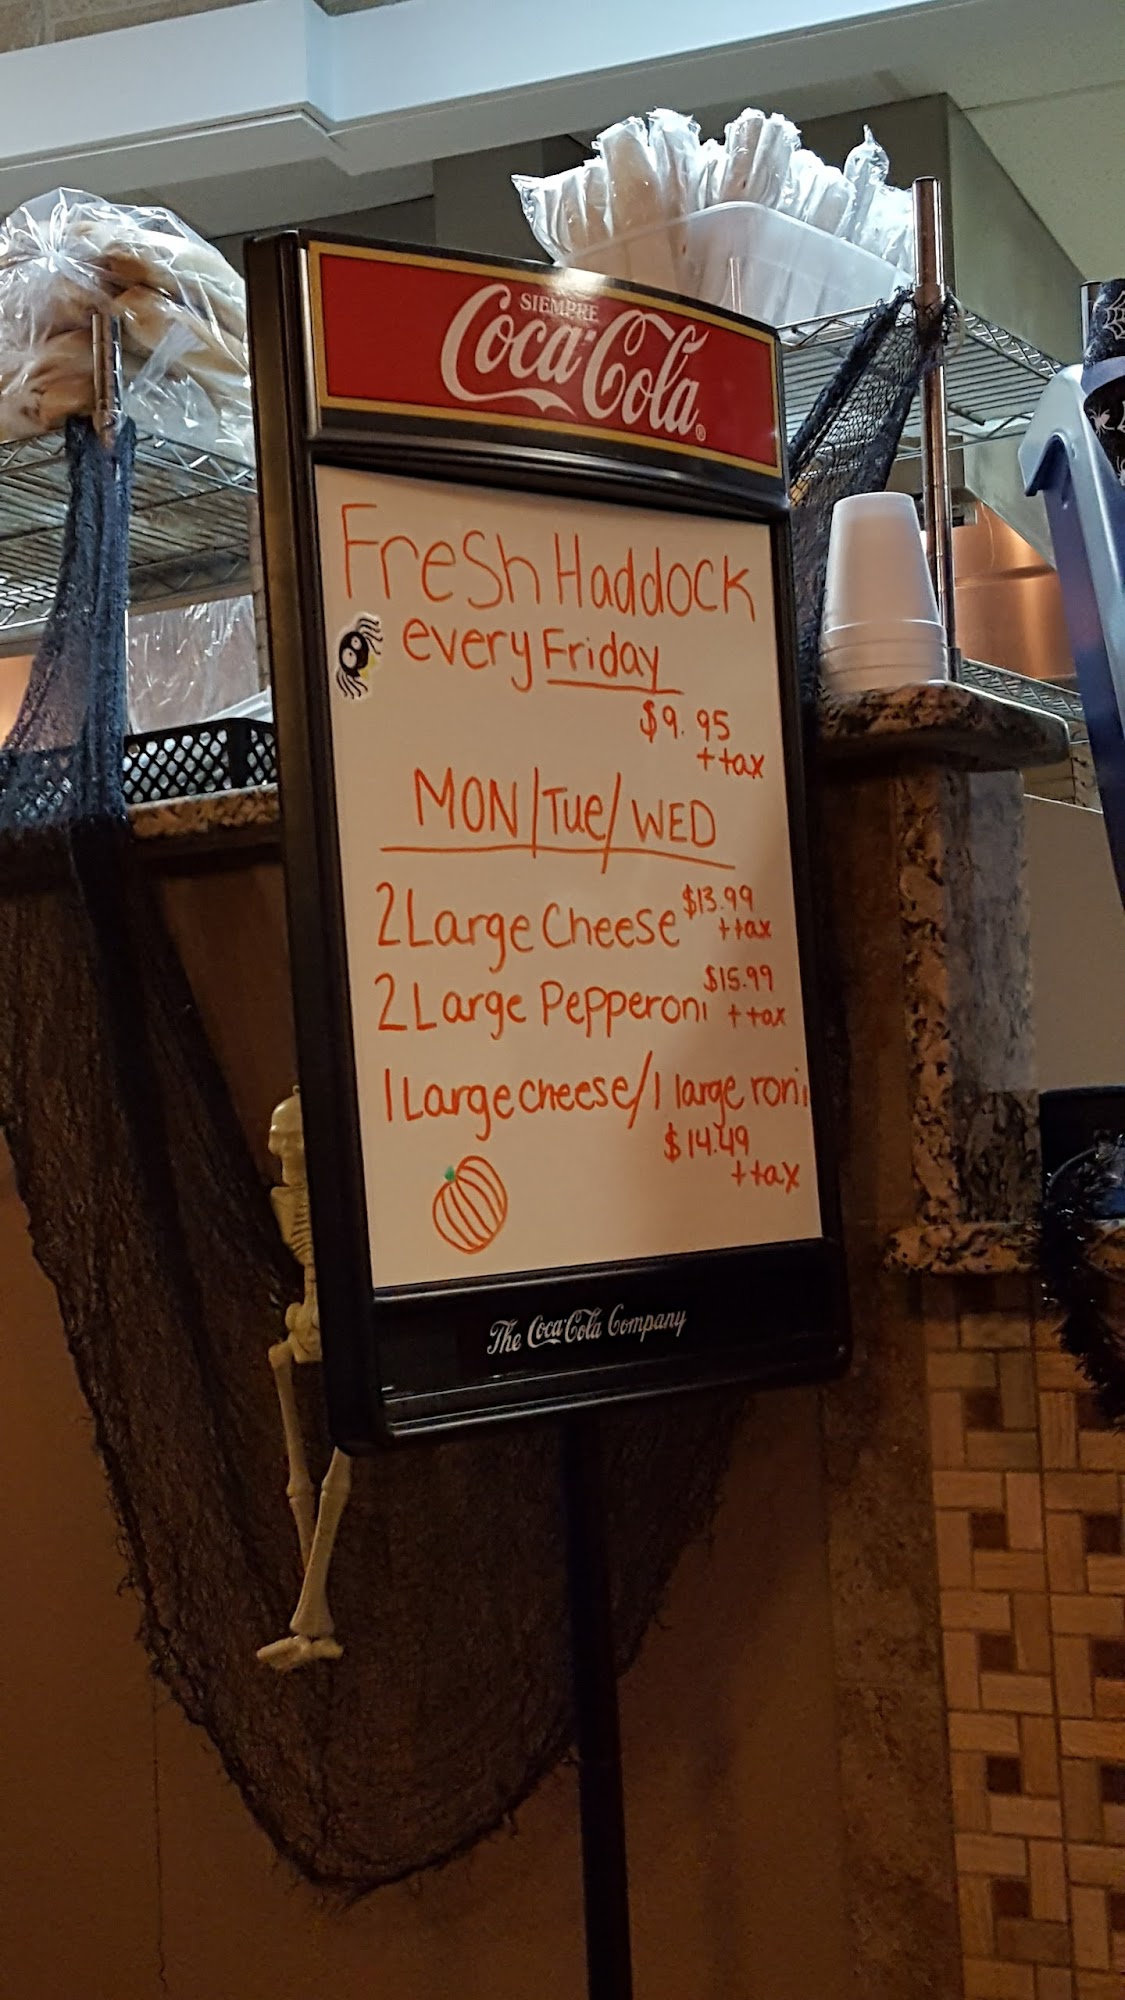 SIEMPRE
Coca-Cola®
Fresh Haddock
every Friday
$9.95
+tax
MON/Tue/WED
2 Large Cheese $13.99
+tax
2 Large Pepperoni $15.99
+tax
1 Large cheese/1 large roni
$14.49
+tax
The Coca-Cola Company